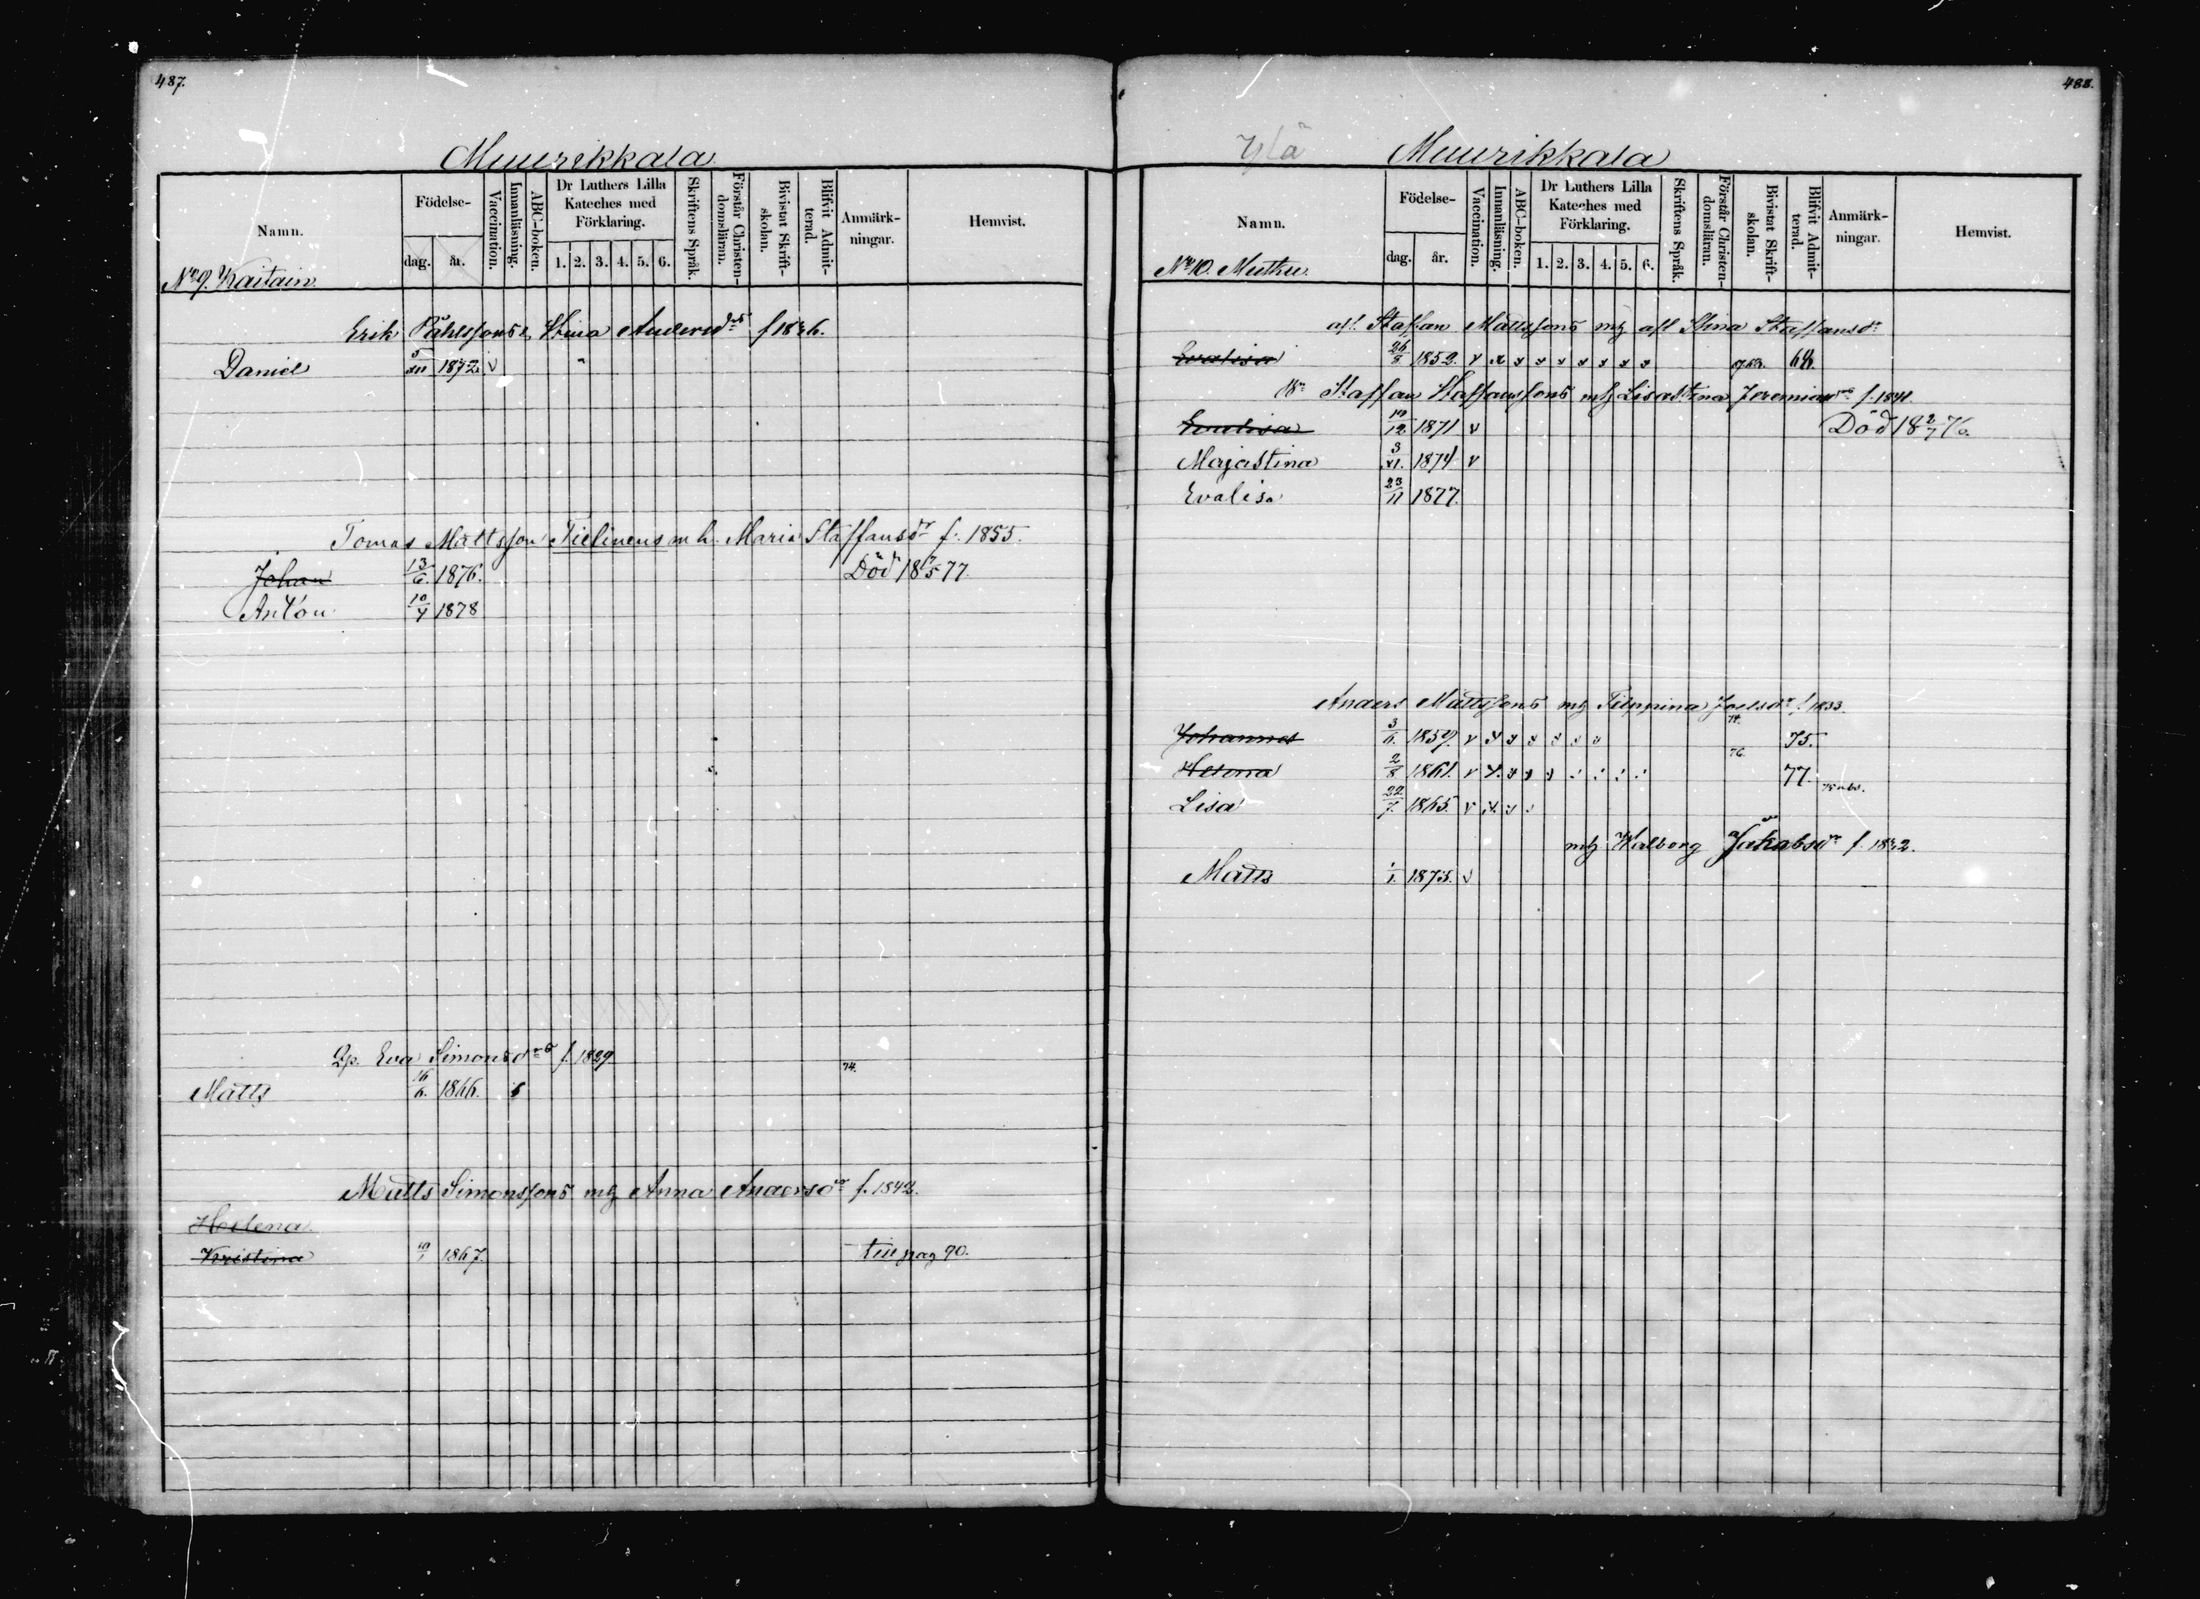 487.
Muurikkala
Namn.
Födelse-
dag.
år.
Vaccination.
Innanläsning.
ABC-boken.
Dr Luthers Lilla
Kateches med
Förklaring.
1. 2. 3. 4. 5. 6.
Skriftens Språk.
Förstår Christen-
domsläran.
Bivistat Skrift-
skolan.
Blifvit Admit-
terad.
Anmärk-
ningar.
Hemvist.
No 9. Kaitain
Erik Påhlssons Stina Andersdrs f 1846.
Daniel 5/XII 1872 v
Tomas Mattsson Tielinens m h. Maria Staffansdr f. 1855.
Johan 13/6 1876. Död 18 /5 77.
Anton 10/4 1878
Qp. Eva Simonsdrs f. 1829
74.
Matts 16/6. 1866.
Matts Simonssons mh Anna Andersdr f. 1842.
Helena
Kristina 1867. till pag 90.
488.
Ylä Muurikkala
Namn.
Födelse-
dag.
år.
Vaccination.
Innanläsning.
ABC-boken.
Dr Luthers Lilla
Kateches med
Förklaring.
1. 2. 3. 4. 5. 6.
Skriftens Språk.
Förstår Christen-
domsläran.
Bivistat Skrift-
skolan.
Blifvit Admit-
terad.
Anmärk-
ningar.
Hemvist.
No 10. Mutku.
afl. Staffan Mattssons mh afl Stina Staffansdr
Evalisa 26/8 1852. v 68.
Staffan Staffanssons mh Lisastina Jeremiasdr f. 1841
Evalisa 10/12 1871 v Död 18 2/7 76.
Majastina 3/XI. 1874 v
Evalisa 23/11 1877.
Anders Mattssons mh Filppina Joelsdr f 1833.
74.
Johannes 3/6. 1857. v 75.
76.
Helena 2/8 1861. v 77.
75 abs.
Lisa 22/7. 1865. v
mh Walborg Jakobsdr f. 1842.
Matts 1/1. 1875. v